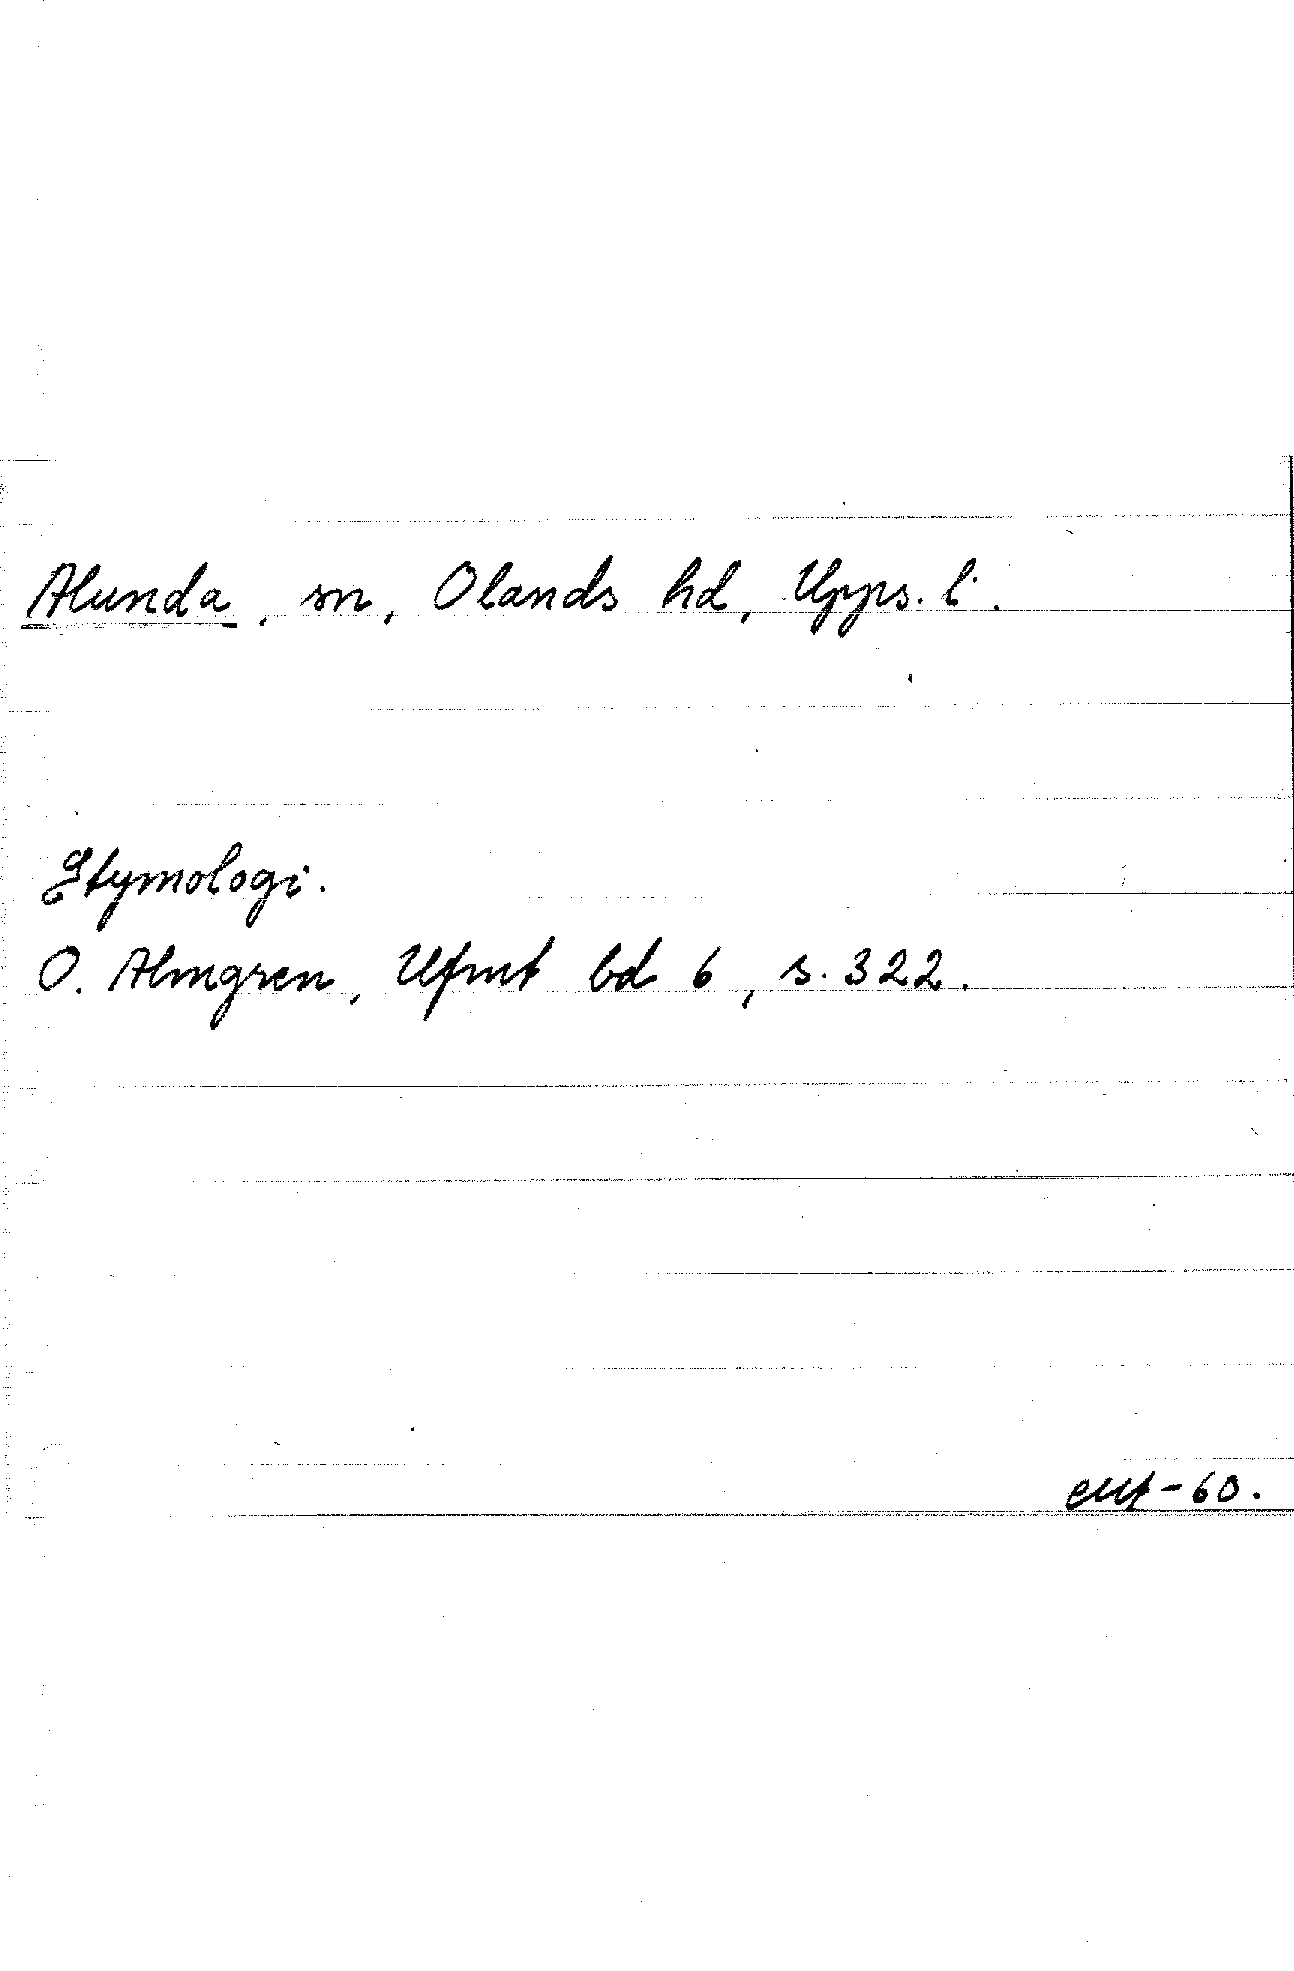 Alunda, sn, Olands hd, Upps. l.
Etymologi.
O. Almgren, Ufmt bd 6, s. 322.
-60.